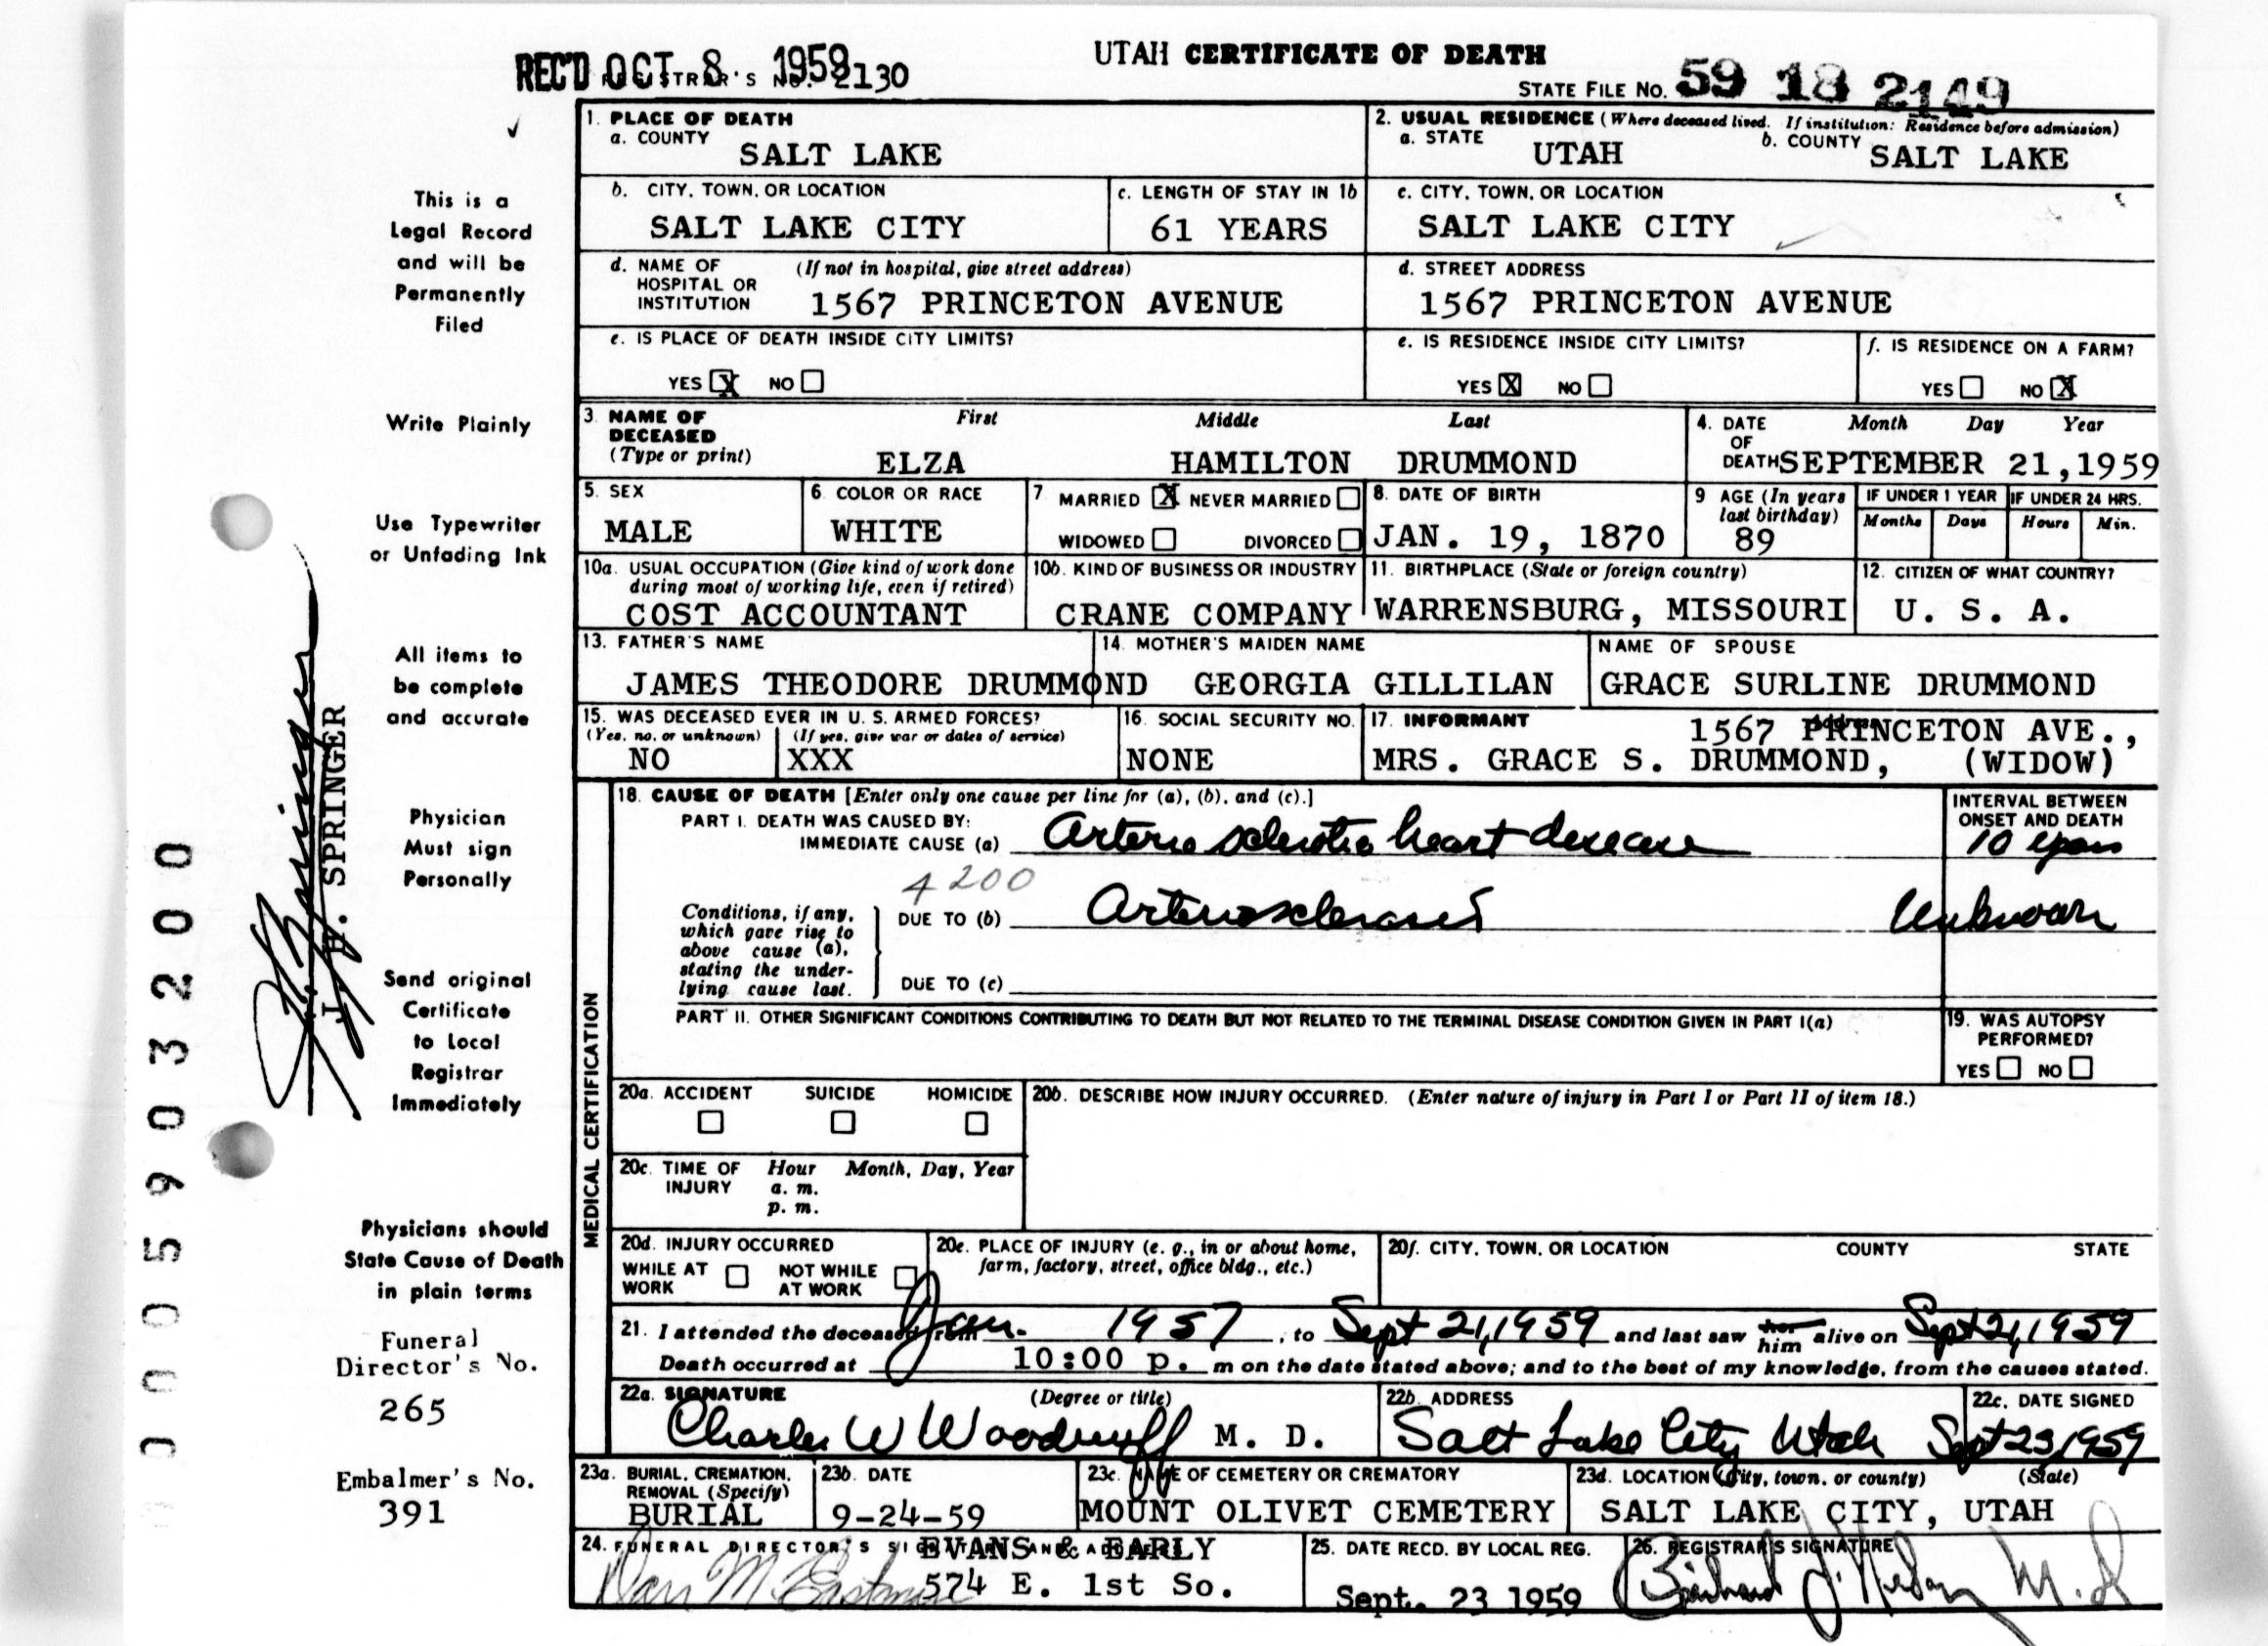 UTAH CERTIFICATE OF DEATH
REC'D OCT 8 1959
2130
STATE FILE No. 59 18 2149
1. PLACE OF DEATH
a. COUNTY
SALT LAKE
2. USUAL RESIDENCE (Where deceased lived. If institution: Residence before admission)
a. STATE UTAH b. COUNTY SALT LAKE
b. CITY, TOWN, OR LOCATION
SALT LAKE CITY
c. LENGTH OF STAY IN 1b
61 YEARS
c. CITY, TOWN, OR LOCATION
SALT LAKE CITY
d. NAME OF HOSPITAL OR INSTITUTION (If not in hospital, give street address)
1567 PRINCETON AVENUE
d. STREET ADDRESS
1567 PRINCETON AVENUE
e. IS PLACE OF DEATH INSIDE CITY LIMITS?
YES X NO
e. IS RESIDENCE INSIDE CITY LIMITS?
YES X NO
f. IS RESIDENCE ON A FARM?
YES NO X
3. NAME OF DECEASED (Type or print)
First Middle Last
ELZA HAMILTON DRUMMOND
4. DATE OF DEATH Month Day Year
SEPTEMBER 21,1959
5. SEX
MALE
6. COLOR OR RACE
WHITE
7 MARRIED X NEVER MARRIED
WIDOWED DIVORCED
8. DATE OF BIRTH
JAN. 19, 1870
9 AGE (In years last birthday)
89
IF UNDER 1 YEAR
Months Days
IF UNDER 24 HRS.
Hours Min.
10a. USUAL OCCUPATION (Give kind of work done during most of working life, even if retired)
COST ACCOUNTANT
10b. KIND OF BUSINESS OR INDUSTRY
CRANE COMPANY
11. BIRTHPLACE (State or foreign country)
WARRENSBURG, MISSOURI
12. CITIZEN OF WHAT COUNTRY?
U. S. A.
13. FATHER'S NAME
JAMES THEODORE DRUMMOND
14. MOTHER'S MAIDEN NAME
GEORGIA GILLILAN
NAME OF SPOUSE
GRACE SURLINE DRUMMOND
15. WAS DECEASED EVER IN U. S. ARMED FORCES?
(Yes, no, or unknown) (If yes, give war or dates of service)
NO XXX
16. SOCIAL SECURITY NO.
NONE
17. INFORMANT Address
1567 PRINCETON AVE.,
MRS. GRACE S. DRUMMOND, (WIDOW)
MEDICAL CERTIFICATION
18. CAUSE OF DEATH [Enter only one cause per line for (a), (b), and (c).]
PART I. DEATH WAS CAUSED BY:
IMMEDIATE CAUSE (a) Arterio sclerotic heart disease
INTERVAL BETWEEN ONSET AND DEATH
10 years
4200
Conditions, if any, which gave rise to above cause (a), stating the underlying cause last.
DUE TO (b) Arteriosclerosis
Unknown
DUE TO (c)
PART II. OTHER SIGNIFICANT CONDITIONS CONTRIBUTING TO DEATH BUT NOT RELATED TO THE TERMINAL DISEASE CONDITION GIVEN IN PART I(a)
19. WAS AUTOPSY PERFORMED?
YES NO
20a. ACCIDENT SUICIDE HOMICIDE
20b. DESCRIBE HOW INJURY OCCURRED. (Enter nature of injury in Part I or Part II of item 18.)
20c. TIME OF INJURY Hour Month, Day, Year
a. m.
p. m.
20d. INJURY OCCURRED
WHILE AT WORK NOT WHILE AT WORK
20e. PLACE OF INJURY (e. g., in or about home, farm, factory, street, office bldg., etc.)
20f. CITY, TOWN, OR LOCATION COUNTY STATE
21. I attended the deceased from Jan. 1957, to Sept 21, 1959 and last saw her him alive on Sept 21, 1959
Death occurred at 10:00 p. m on the date stated above; and to the best of my knowledge, from the causes stated.
22a. SIGNATURE (Degree or title)
Charles W Woodruff M. D.
22b. ADDRESS
Salt Lake City Utah
22c. DATE SIGNED
Sept 23, 1959
23a. BURIAL, CREMATION, REMOVAL (Specify)
BURIAL
23b. DATE
9-24-59
23c. NAME OF CEMETERY OR CREMATORY
MOUNT OLIVET CEMETERY
23d. LOCATION (City, town, or county) (State)
SALT LAKE CITY, UTAH
24. FUNERAL DIRECTOR'S SIGNATURE AND ADDRESS
EVANS & EARLY
574 E. 1st So.
25. DATE RECD. BY LOCAL REG.
Sept. 23 1959
26. REGISTRAR'S SIGNATURE
M.D
This is a
Legal Record
and will be
Permanently
Filed
Write Plainly
Use Typewriter
or Unfading Ink
All items to
be complete
and accurate
Physician
Must sign
Personally
Send original
Certificate
to Local
Registrar
Immediately
Physicians should
State Cause of Death
in plain terms
Funeral
Director's No.
265
Embalmer's No.
391
J. H. SPRINGER
J H Springer
0005903200